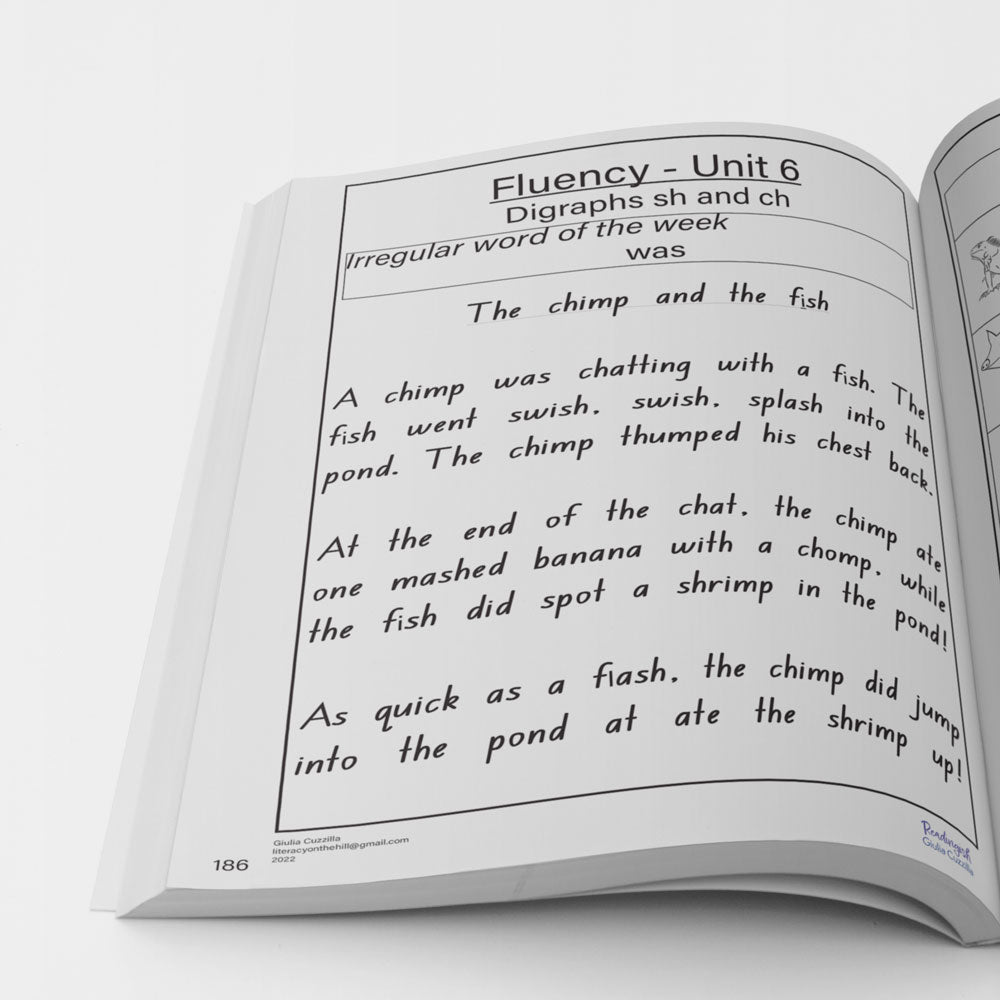 Fluency - Unit 6
Digraphs sh and ch
Irregular word of the week
was
The chimp and the fish
A chimp was chatting with a fish. The
fish went swish, swish, splash into the
pond. The chimp thumped his chest back.
At the end of the chat, the chimp ate
one mashed banana with a chomp, while
the fish did spot a shrimp in the pond!
As quick as a flash, the chimp did jump
into the pond at ate the shrimp up!
Giulia Cuzzilla
literacyonthehill@gmail.com
2022
186
Readingish
Giulia Cuzzilla